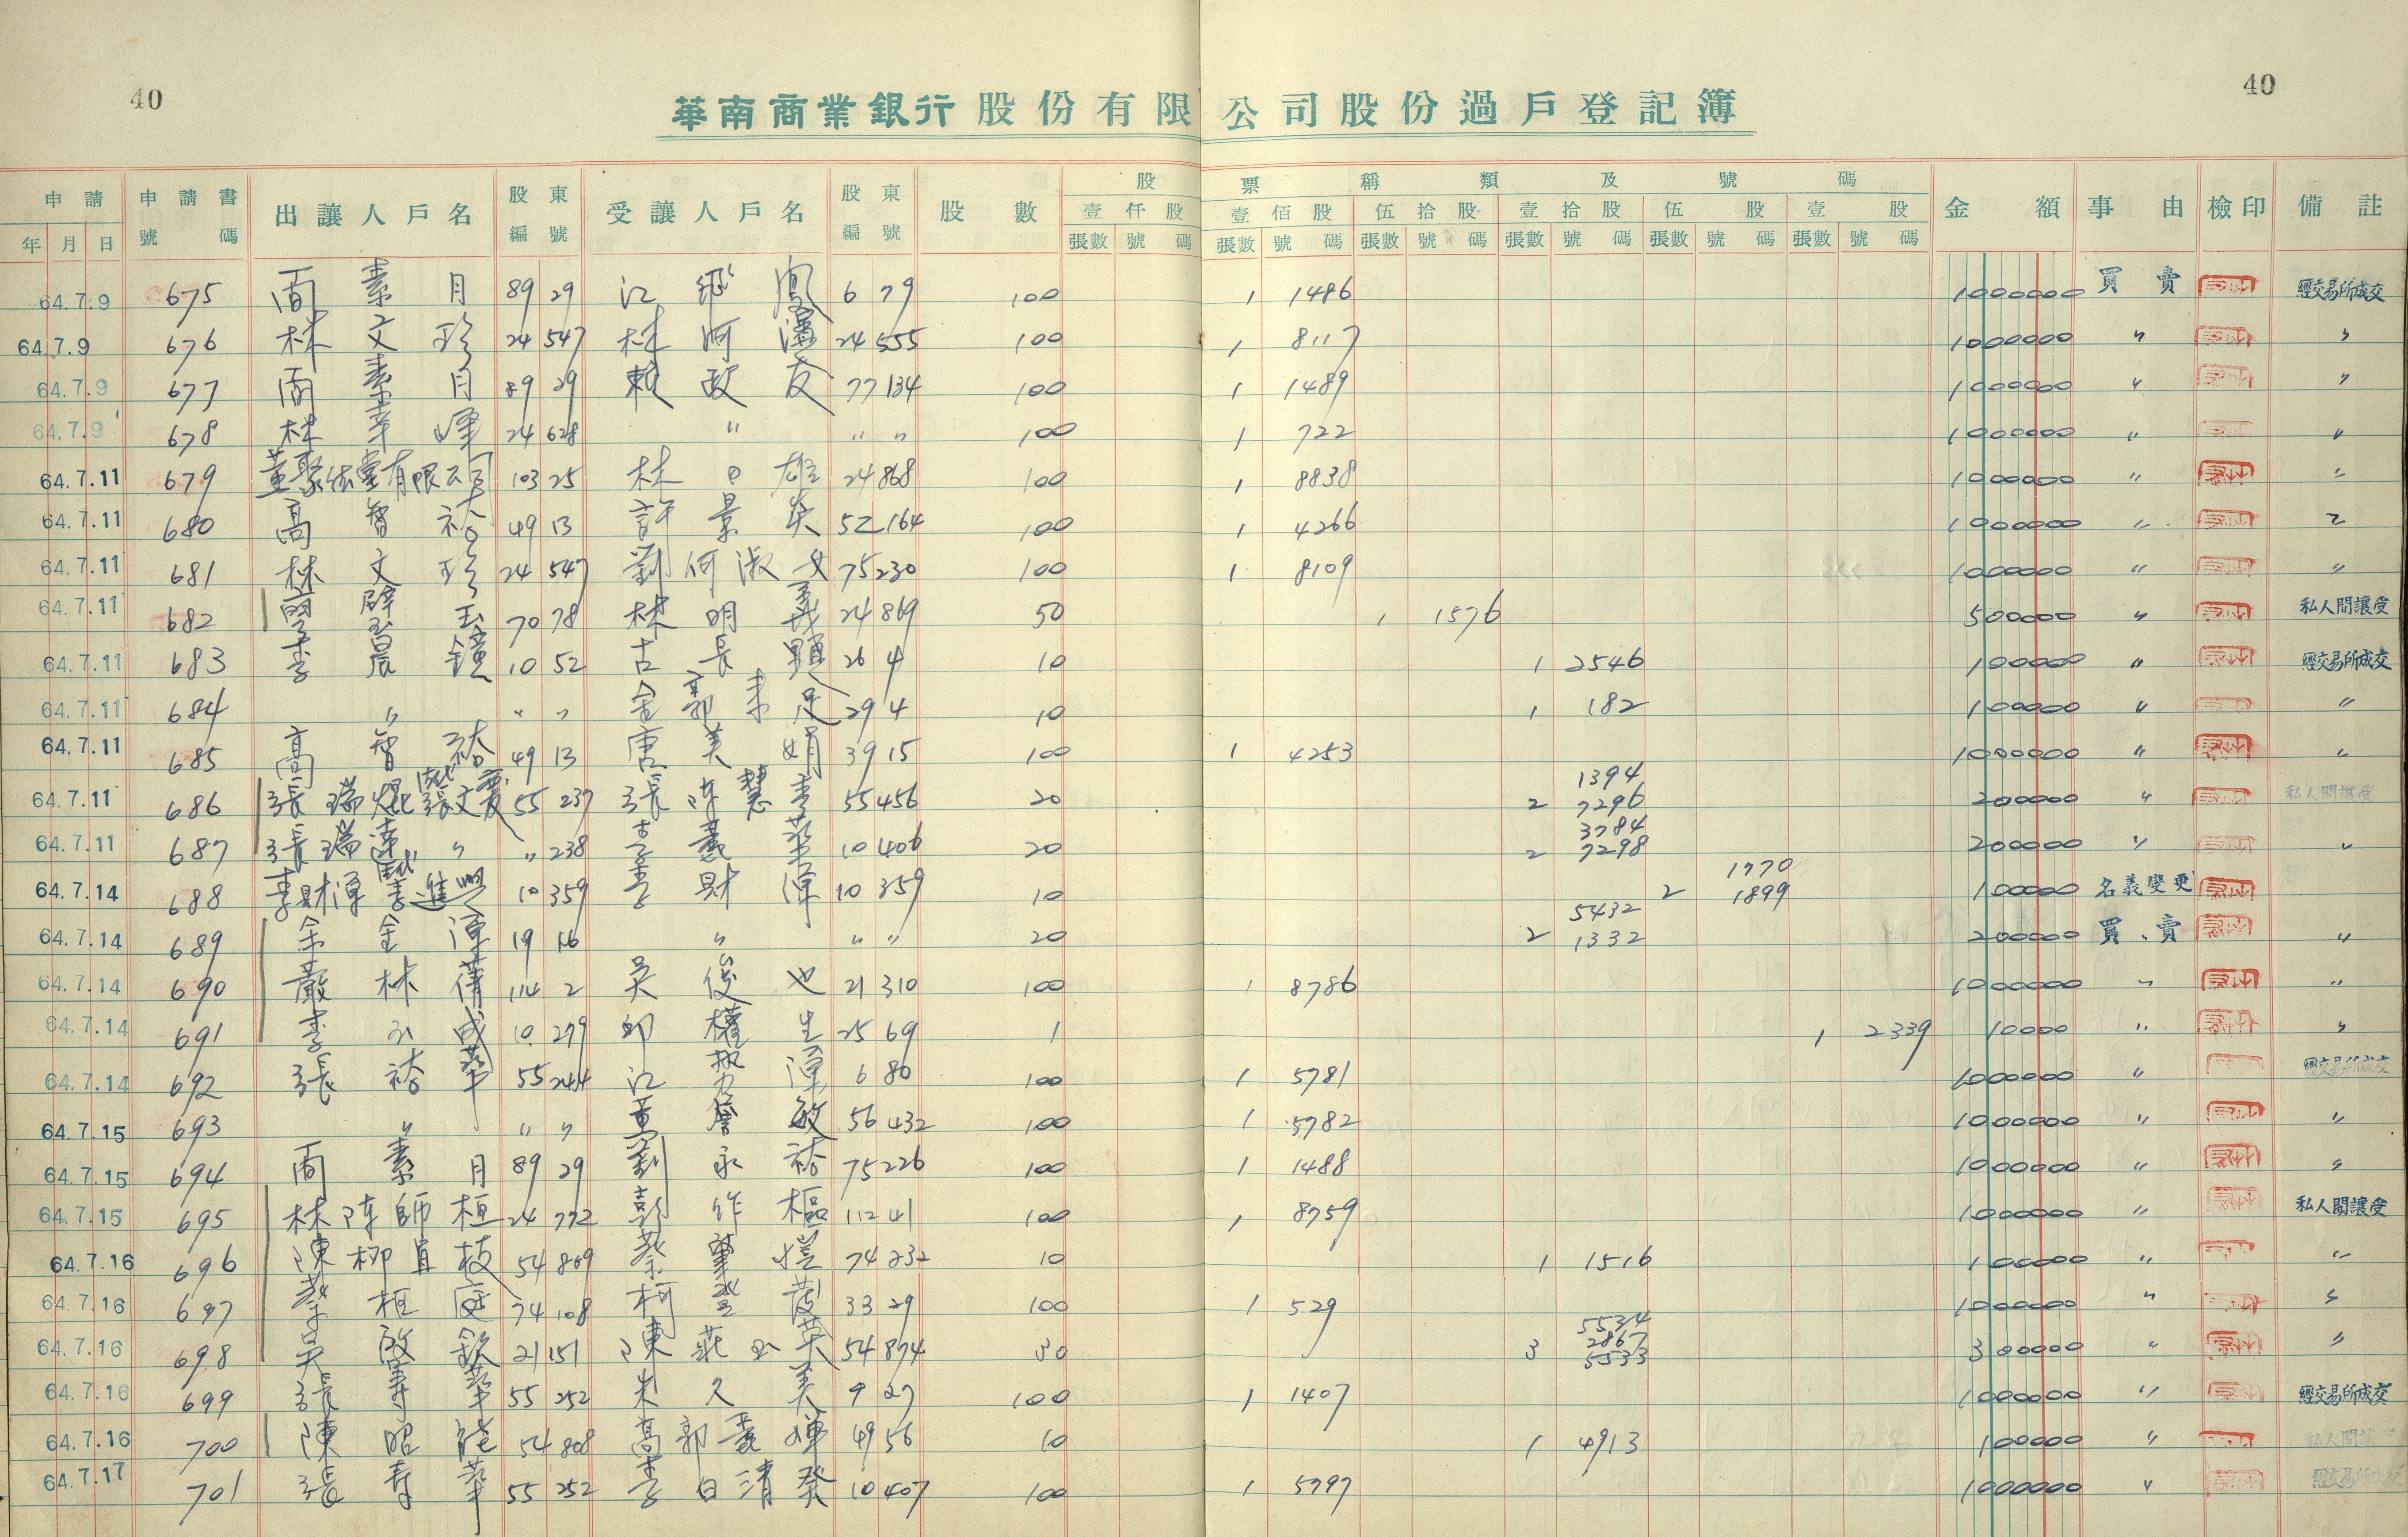 40
40
華南商業銀行股份有限公司股份過戶登記簿
申請 年 月 日 申請書號碼 出讓人戶名 股東編號 受讓人戶名 股東編號 股數 股票種類及號碼 金額 事由 檢印 備註
壹仟股 壹佰股 伍拾股 壹拾股 伍股 壹股
張數 號碼 張數 號碼 張數 號碼 張數 號碼 張數 號碼 張數 號碼
64.7.9 675 素月 89 29 江鳳 6 79 100 1 1486 1000000 買賣 經交易所成交
64.7.9 676 林文珍 24 547 林阿 24 555 100 1 8117 1000000 〃 〃
64.7.9 677 素月 89 29 賴政友 77 134 100 1 1489 1000000 〃 〃
64.7.9 678 林峰 24 628 〃 〃 〃 100 1 722 1000000 〃 〃
64.7.11 679 董聚堂有限公司 103 25 林日雄 24 868 100 1 8838 1000000 〃 〃
64.7.11 680 高智裕 49 13 許景英 52 164 100 1 4266 1000000 〃 〃
64.7.11 681 林文珍 24 547 劉何淑女 75 230 100 1 8109 1000000 〃 〃
64.7.11 682 玉 70 78 林明義 24 869 50 1 1576 500000 〃 私人間讓受
64.7.11 683 李晨鐘 10 52 古長顯 26 4 10 1 2546 100000 〃 經交易所成交
64.7.11 684 〃 〃 〃 余郭來足 29 4 10 1 182 100000 〃 〃
64.7.11 685 高智裕 49 13 唐美娟 39 15 100 1 4253 1000000 〃 〃
64.7.11 686 張瑞焜 張文慶 55 237 張陳慧 55 456 20 2 1394 7296 200000 〃 私人間讓受
64.7.11 687 張瑞達 〃 〃 238 李華 10 406 20 2 3784 7298 200000 〃 〃
64.7.14 688 李財潭 李進興 10 359 李財潭 10 359 10 2 1770 1899 100000 名義變更
64.7.14 689 余金潭 19 16 〃 〃 〃 20 2 5432 1332 200000 買賣 〃
64.7.14 690 嚴林 114 2 吳俊也 21 310 100 1 8786 1000000 〃 〃
64.7.14 691 李成 10 279 邱權生 25 69 1 1 2339 10000 〃 〃
64.7.14 692 張裕華 55 244 江潭 6 80 100 1 5781 1000000 〃 經交易所成交
64.7.15 693 〃 〃 〃 黃詹敏 56 432 100 1 5782 1000000 〃 〃
64.7.15 694 素月 89 29 劉永裕 75 226 100 1 1488 1000000 〃 〃
64.7.15 695 林陳師桓 24 772 彭作樞 112 41 100 1 8759 1000000 〃 私人間讓受
64.7.16 696 陳柳眉枝 54 869 蔡肇 74 232 10 1 1516 100000 〃 〃
64.7.16 697 蔡柜庭 74 108 柯登 33 29 100 1 529 1000000 〃 〃
64.7.16 698 吳啟欽 21 151 陳莊英 54 874 30 3 5534 2867 5533 300000 〃 〃
64.7.16 699 張壽華 55 252 朱久美 9 27 100 1 1407 1000000 〃 經交易所成交
64.7.16 700 陳昭能 54 808 高郭嬋 49 56 10 1 4913 100000 〃 私人間讓受
64.7.17 701 張壽華 55 252 李白清癸 10 407 100 1 5797 1000000 〃 經交易所成交